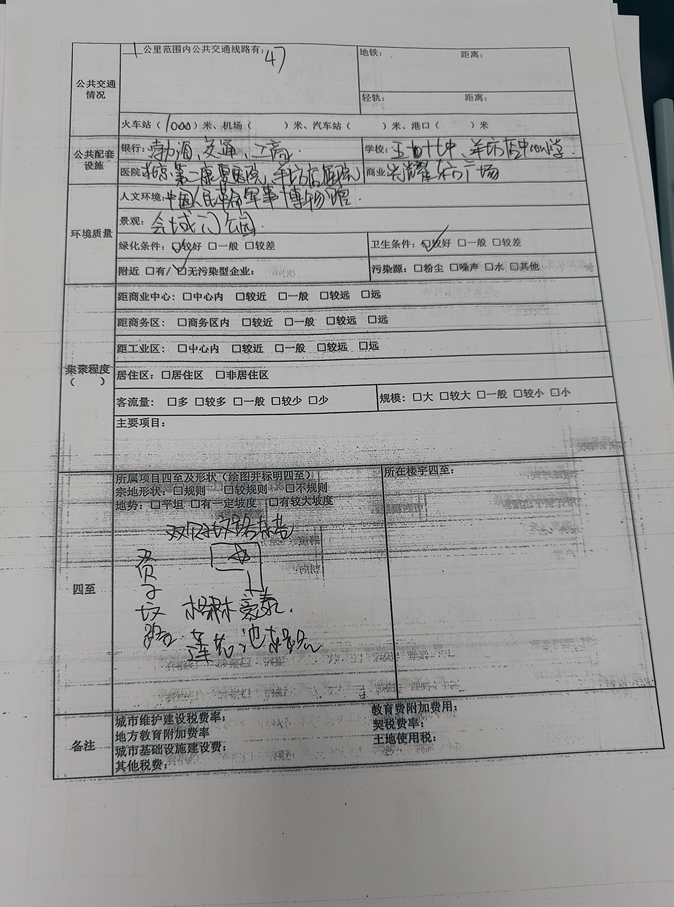 公共交通情况
一公里范围内公共交通线路有：47
地铁： 距离：
轻轨： 距离：
火车站（1000）米、机场（ ）米、汽车站（ ）米、港口（ ）米
公共配套设施
银行：渤海，交通，工商
学校：五十七中，羊坊店中心小学
医院：第二康复医院，羊坊店医院
商业：光耀东方广场
环境质量
人文环境：中国人民革命军事博物馆
景观：会城门公园
绿化条件：☑较好 □一般 □较差
卫生条件：☑较好 □一般 □较差
附近 □有/☑无污染型企业：
污染源：□粉尘 □噪声 □水 □其他
集聚程度（ ）
距商业中心：□中心内 □较近 □一般 □较远 □远
距商务区：□商务区内 □较近 □一般 □较远 □远
距工业区：□中心内 □较近 □一般 □较远 □远
居住区：□居住区 □非居住区
客流量：□多 □较多 □一般 □较少 □少
规模：□大 □较大 □一般 □较小 □小
主要项目：
四至
所属项目四至及形状（绘图并标明四至）
宗地形状：□规则 □较规则 □不规则
地势：□平坦 □有一定坡度 □有较大坡度
所在楼宇四至：
双贝子坟路
贝子坟路
莲花池东路
备注
城市维护建设税费率：
地方教育附加费率
城市基础设施建设费：
其他税费：
教育费附加费用：
契税费率：
土地使用税：